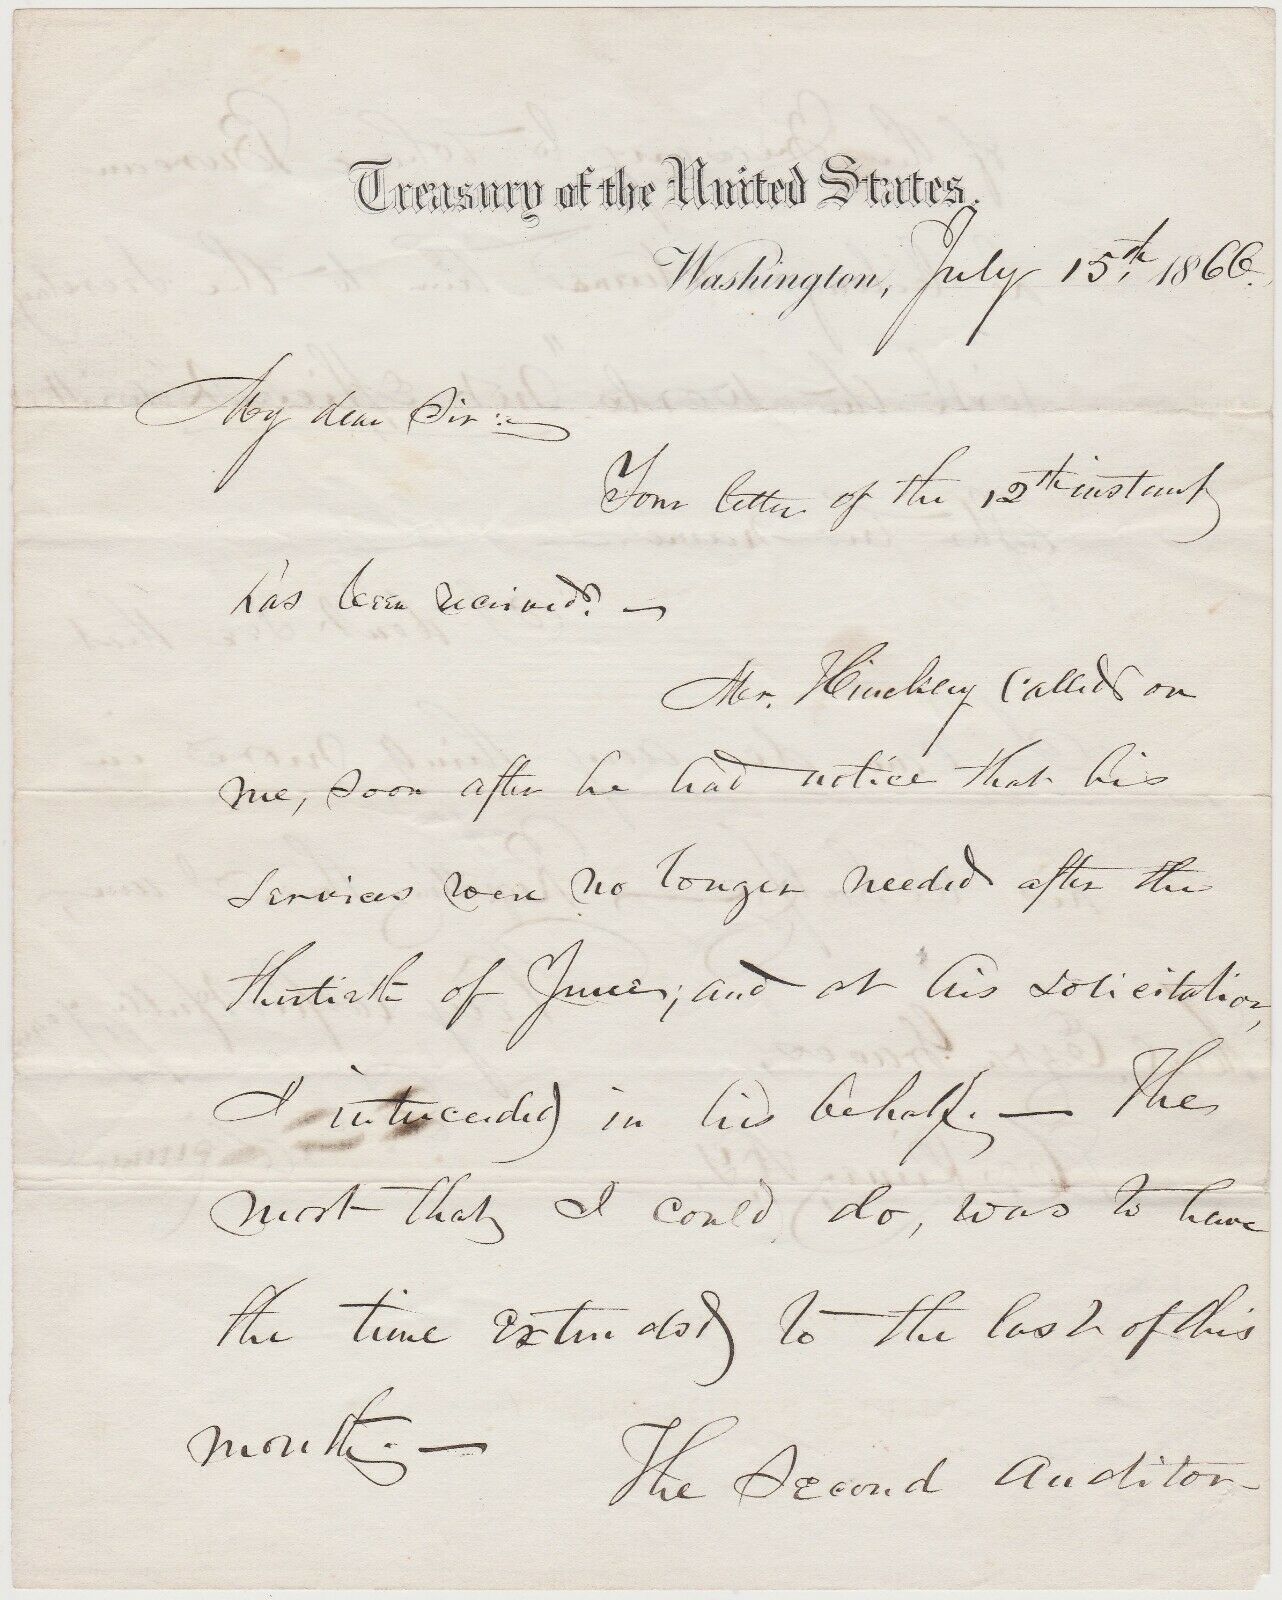 Treasury of the United States.
Washington, July 15th, 1866.
My dear Sir:
Your letter of the 12th instant
has been received. —
Mr. Hinckley called on
me, soon after he had notice that his
services were no longer needed after the
thirtieth of June; and at his solicitation,
I interceeded in his behalf. — The
most that I could do, was to have
the time extended to the last of this
month. —
The Second Auditor